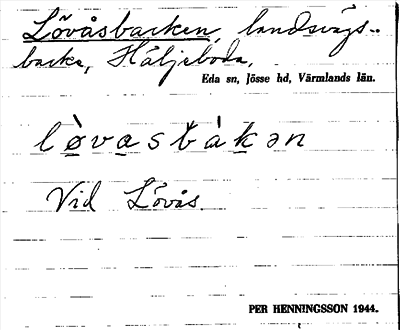 Lövåsbacken, landsvägs-
backe, Häljeboda,
Eda sn, Jösse hd, Värmlands län.
lø̀vasbàkən
Vid Lövås.
PER HENNINGSSON 1944.